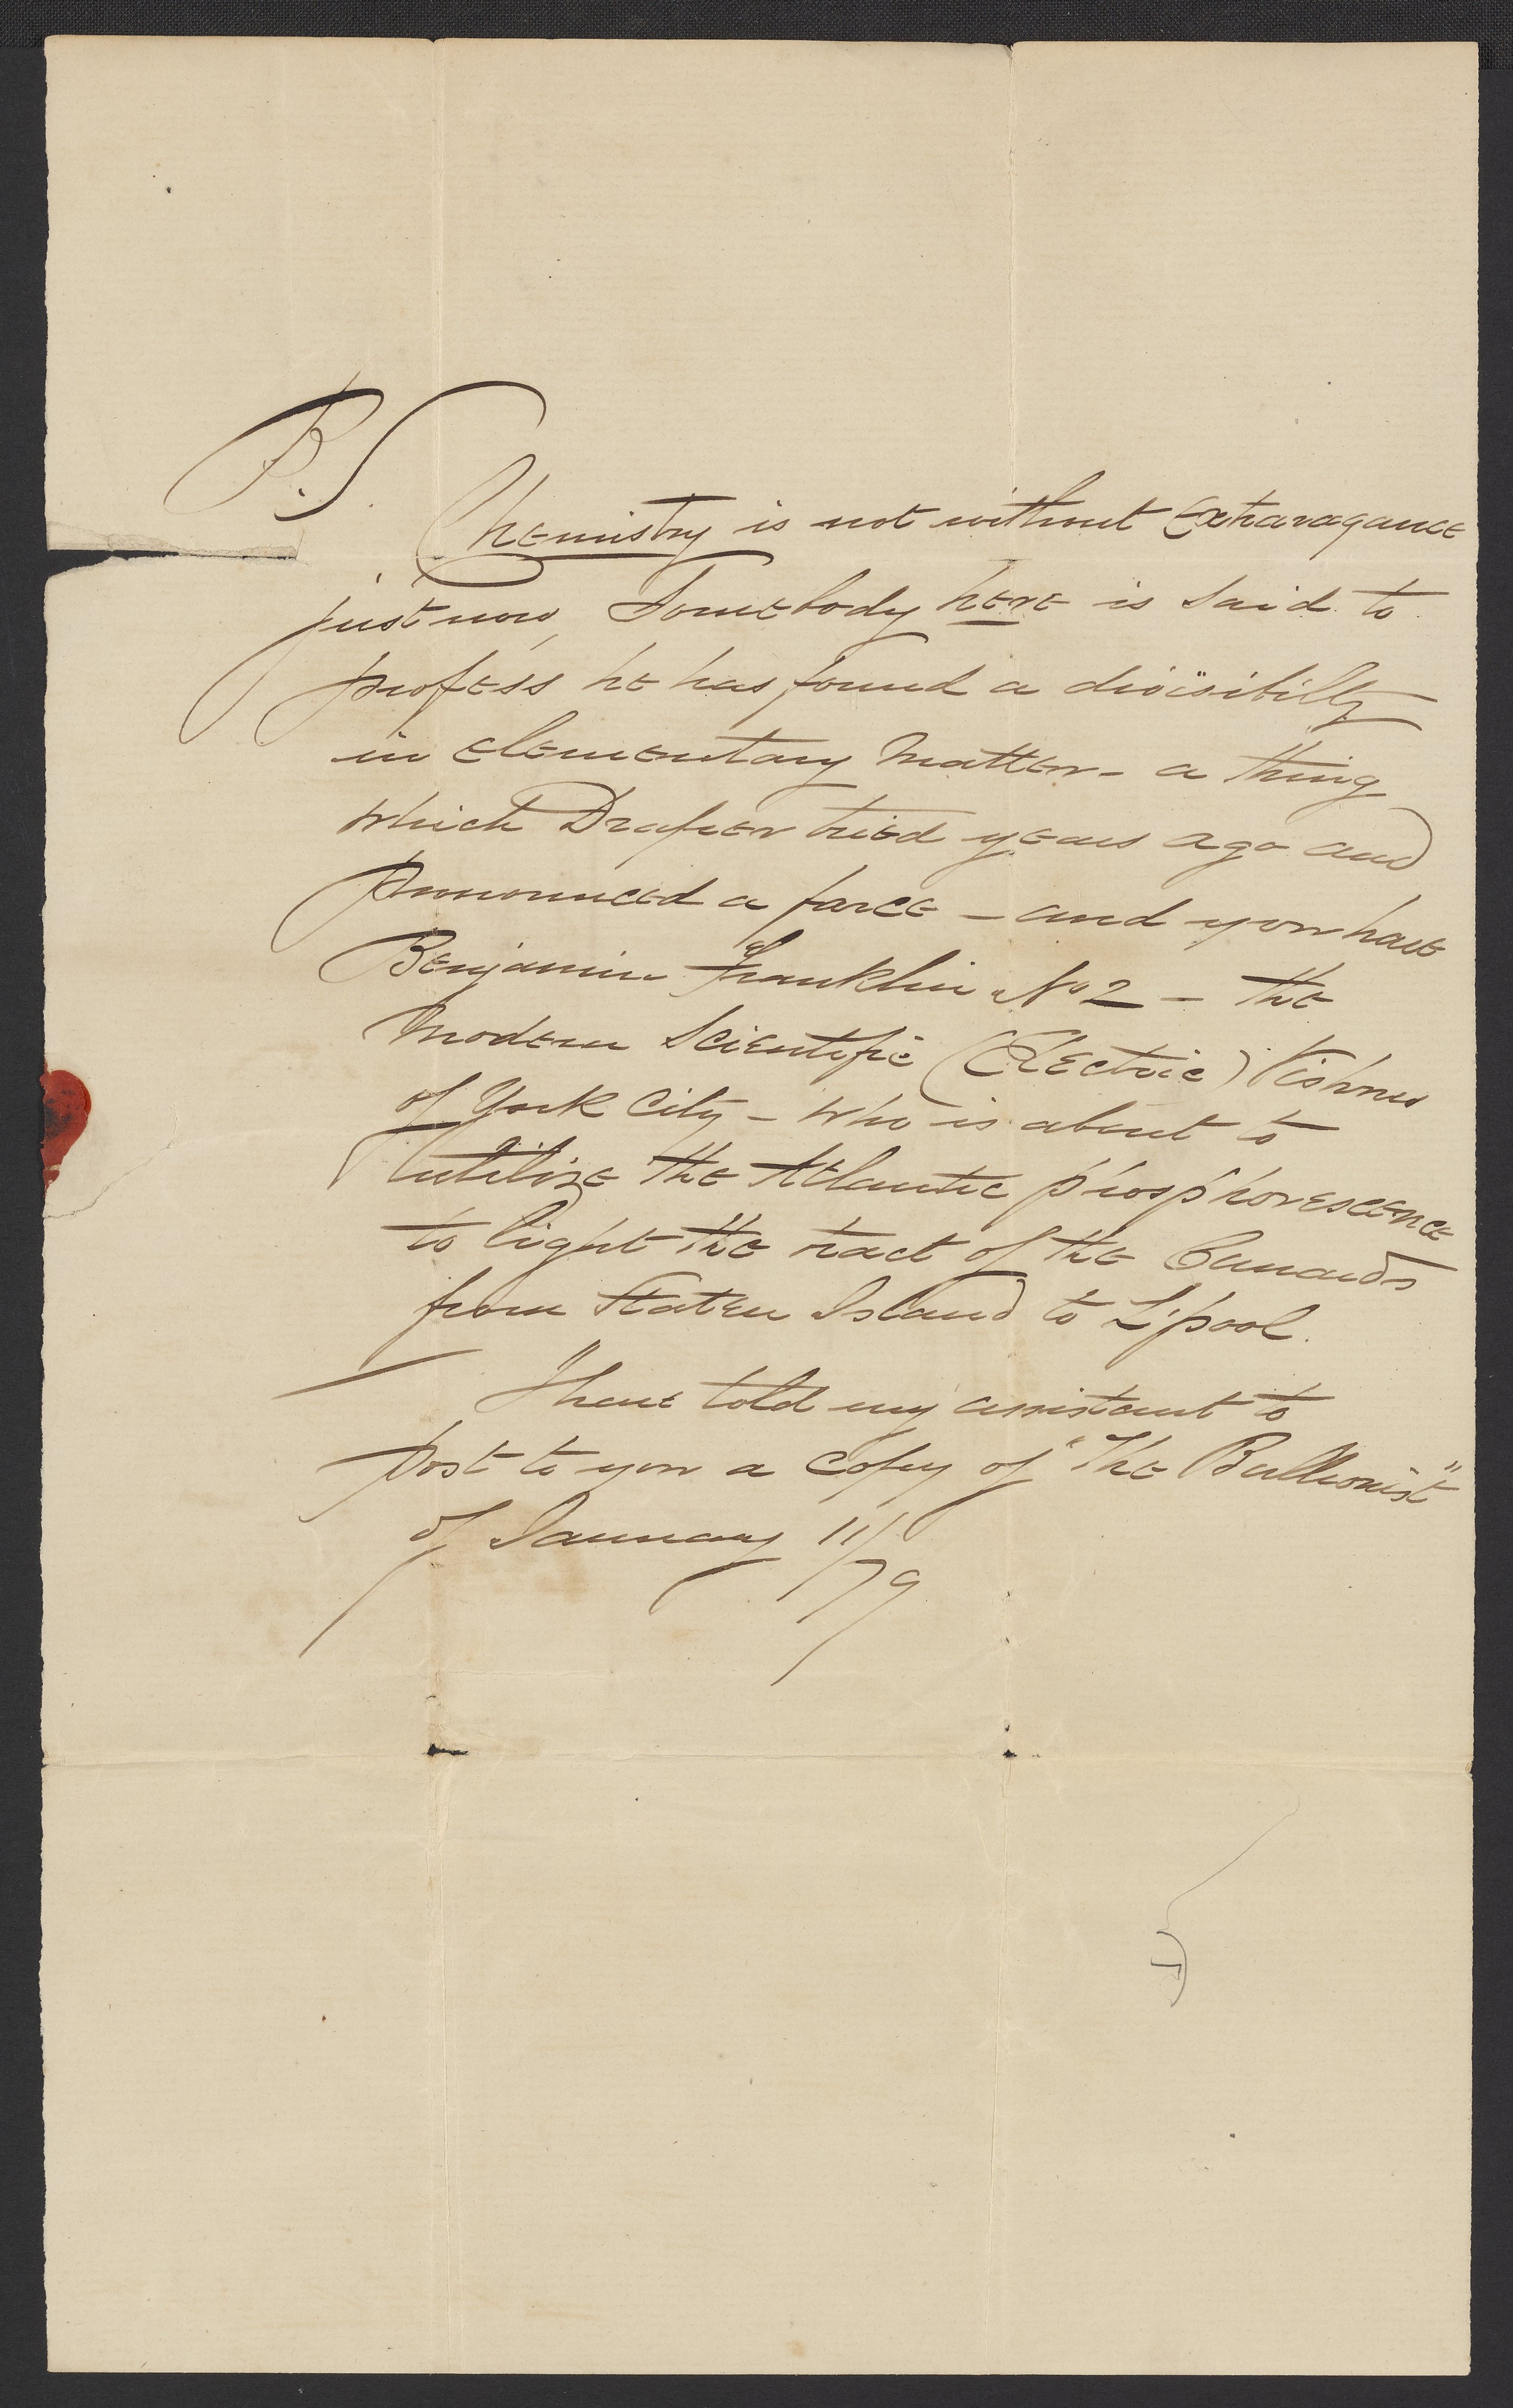 P.S.
Chemistry is not without Extravagance
just now, Somebody here is said to
profess he has found a divisibilty
in elementary matter - a thing
which Draper tried years ago and
pronounced a farce - and you have
Benjamin Franklin No 2 - the
modern Scientific (Electric) Vishnu
of York City - who is about to
utilize the Atlantic phosphorescence
to light the tract of the Cunards
from Staten Island to L'pool.
I have told my assistant to
post to you a copy of "The Bullionist"
of January 11/79